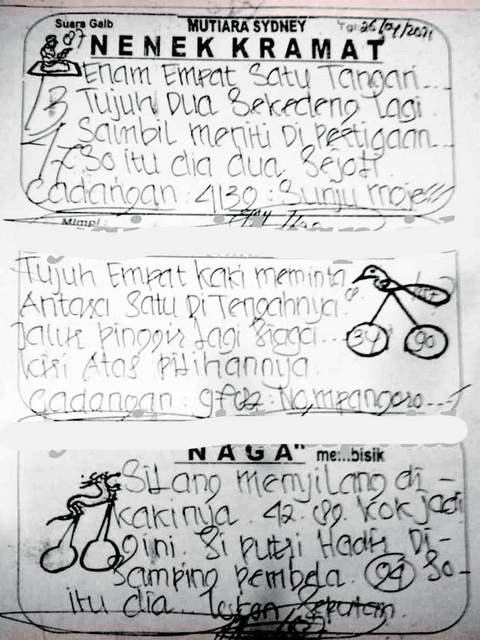 Suara Gaib MUTIARA SYDNEY Tgl 26/04/2021
07 NENEK KRAMAT
Enam Empat Satu Tangan...
Tujuh Dua Sekedeng Lagi
Sambil meniti Di Pertigaan...
So itu dia dua Sejoli
Cadangan : 4130 : Sunju
Mimpi :
Tujuh Empat kaki meminta
Antara Satu Di Tengahnya
Jalur pinggir Lagi Sigga...
kiri Atas Pilihannya
34 90
Cadangan :
NAGA" me:..bisik
Silang menyilang di -
kakinya . 42 . 89 . kok jadi
gini . Si putri Hadir Di -
Samping pembela . 94 So -
itu dia ..